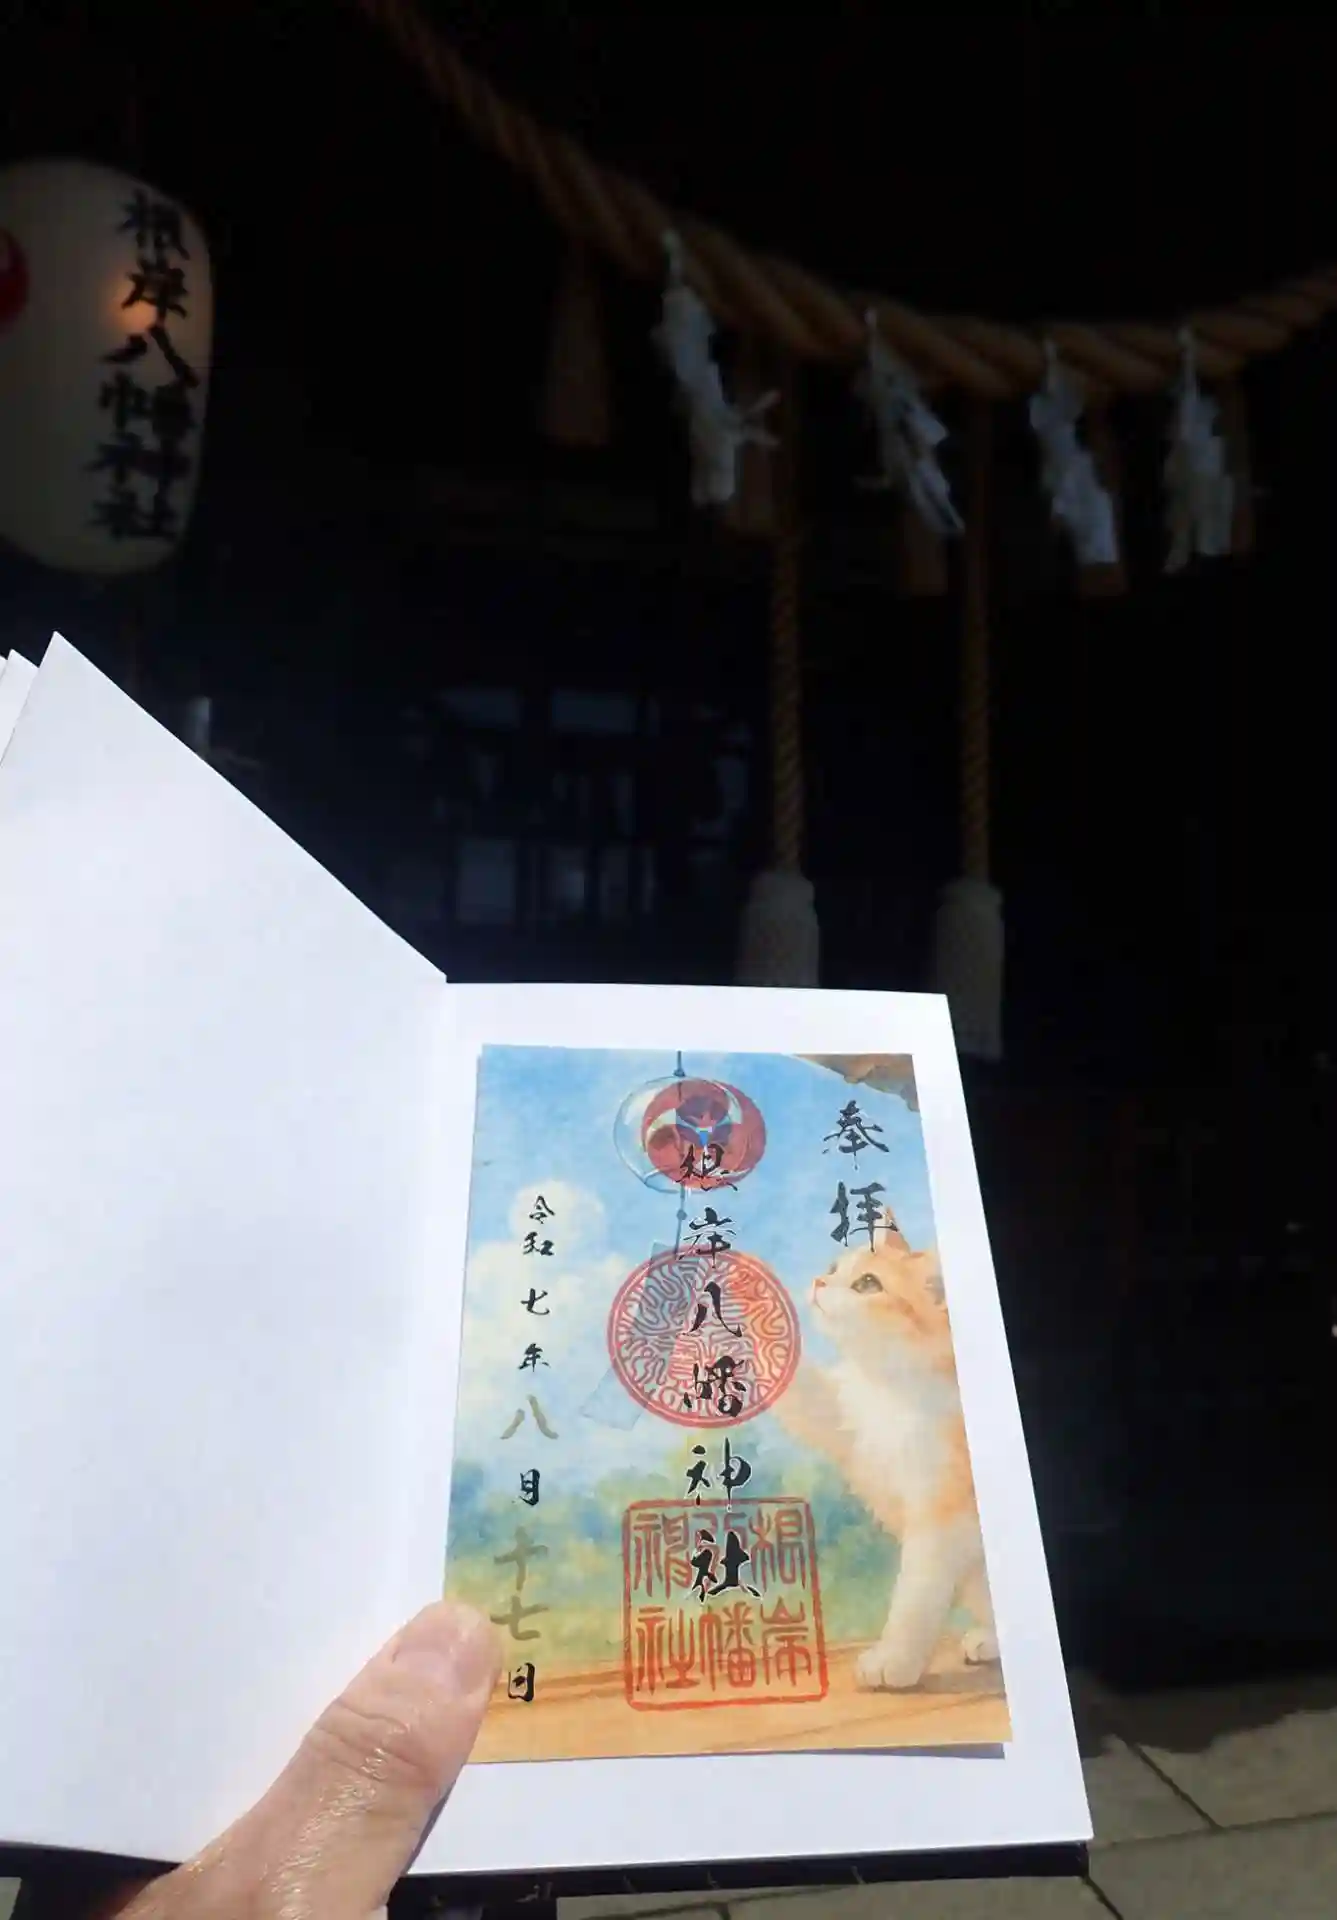 根岸八幡神社
奉拝
根岸八幡神社
令和七年八月十七日
根岸
八幡
神社